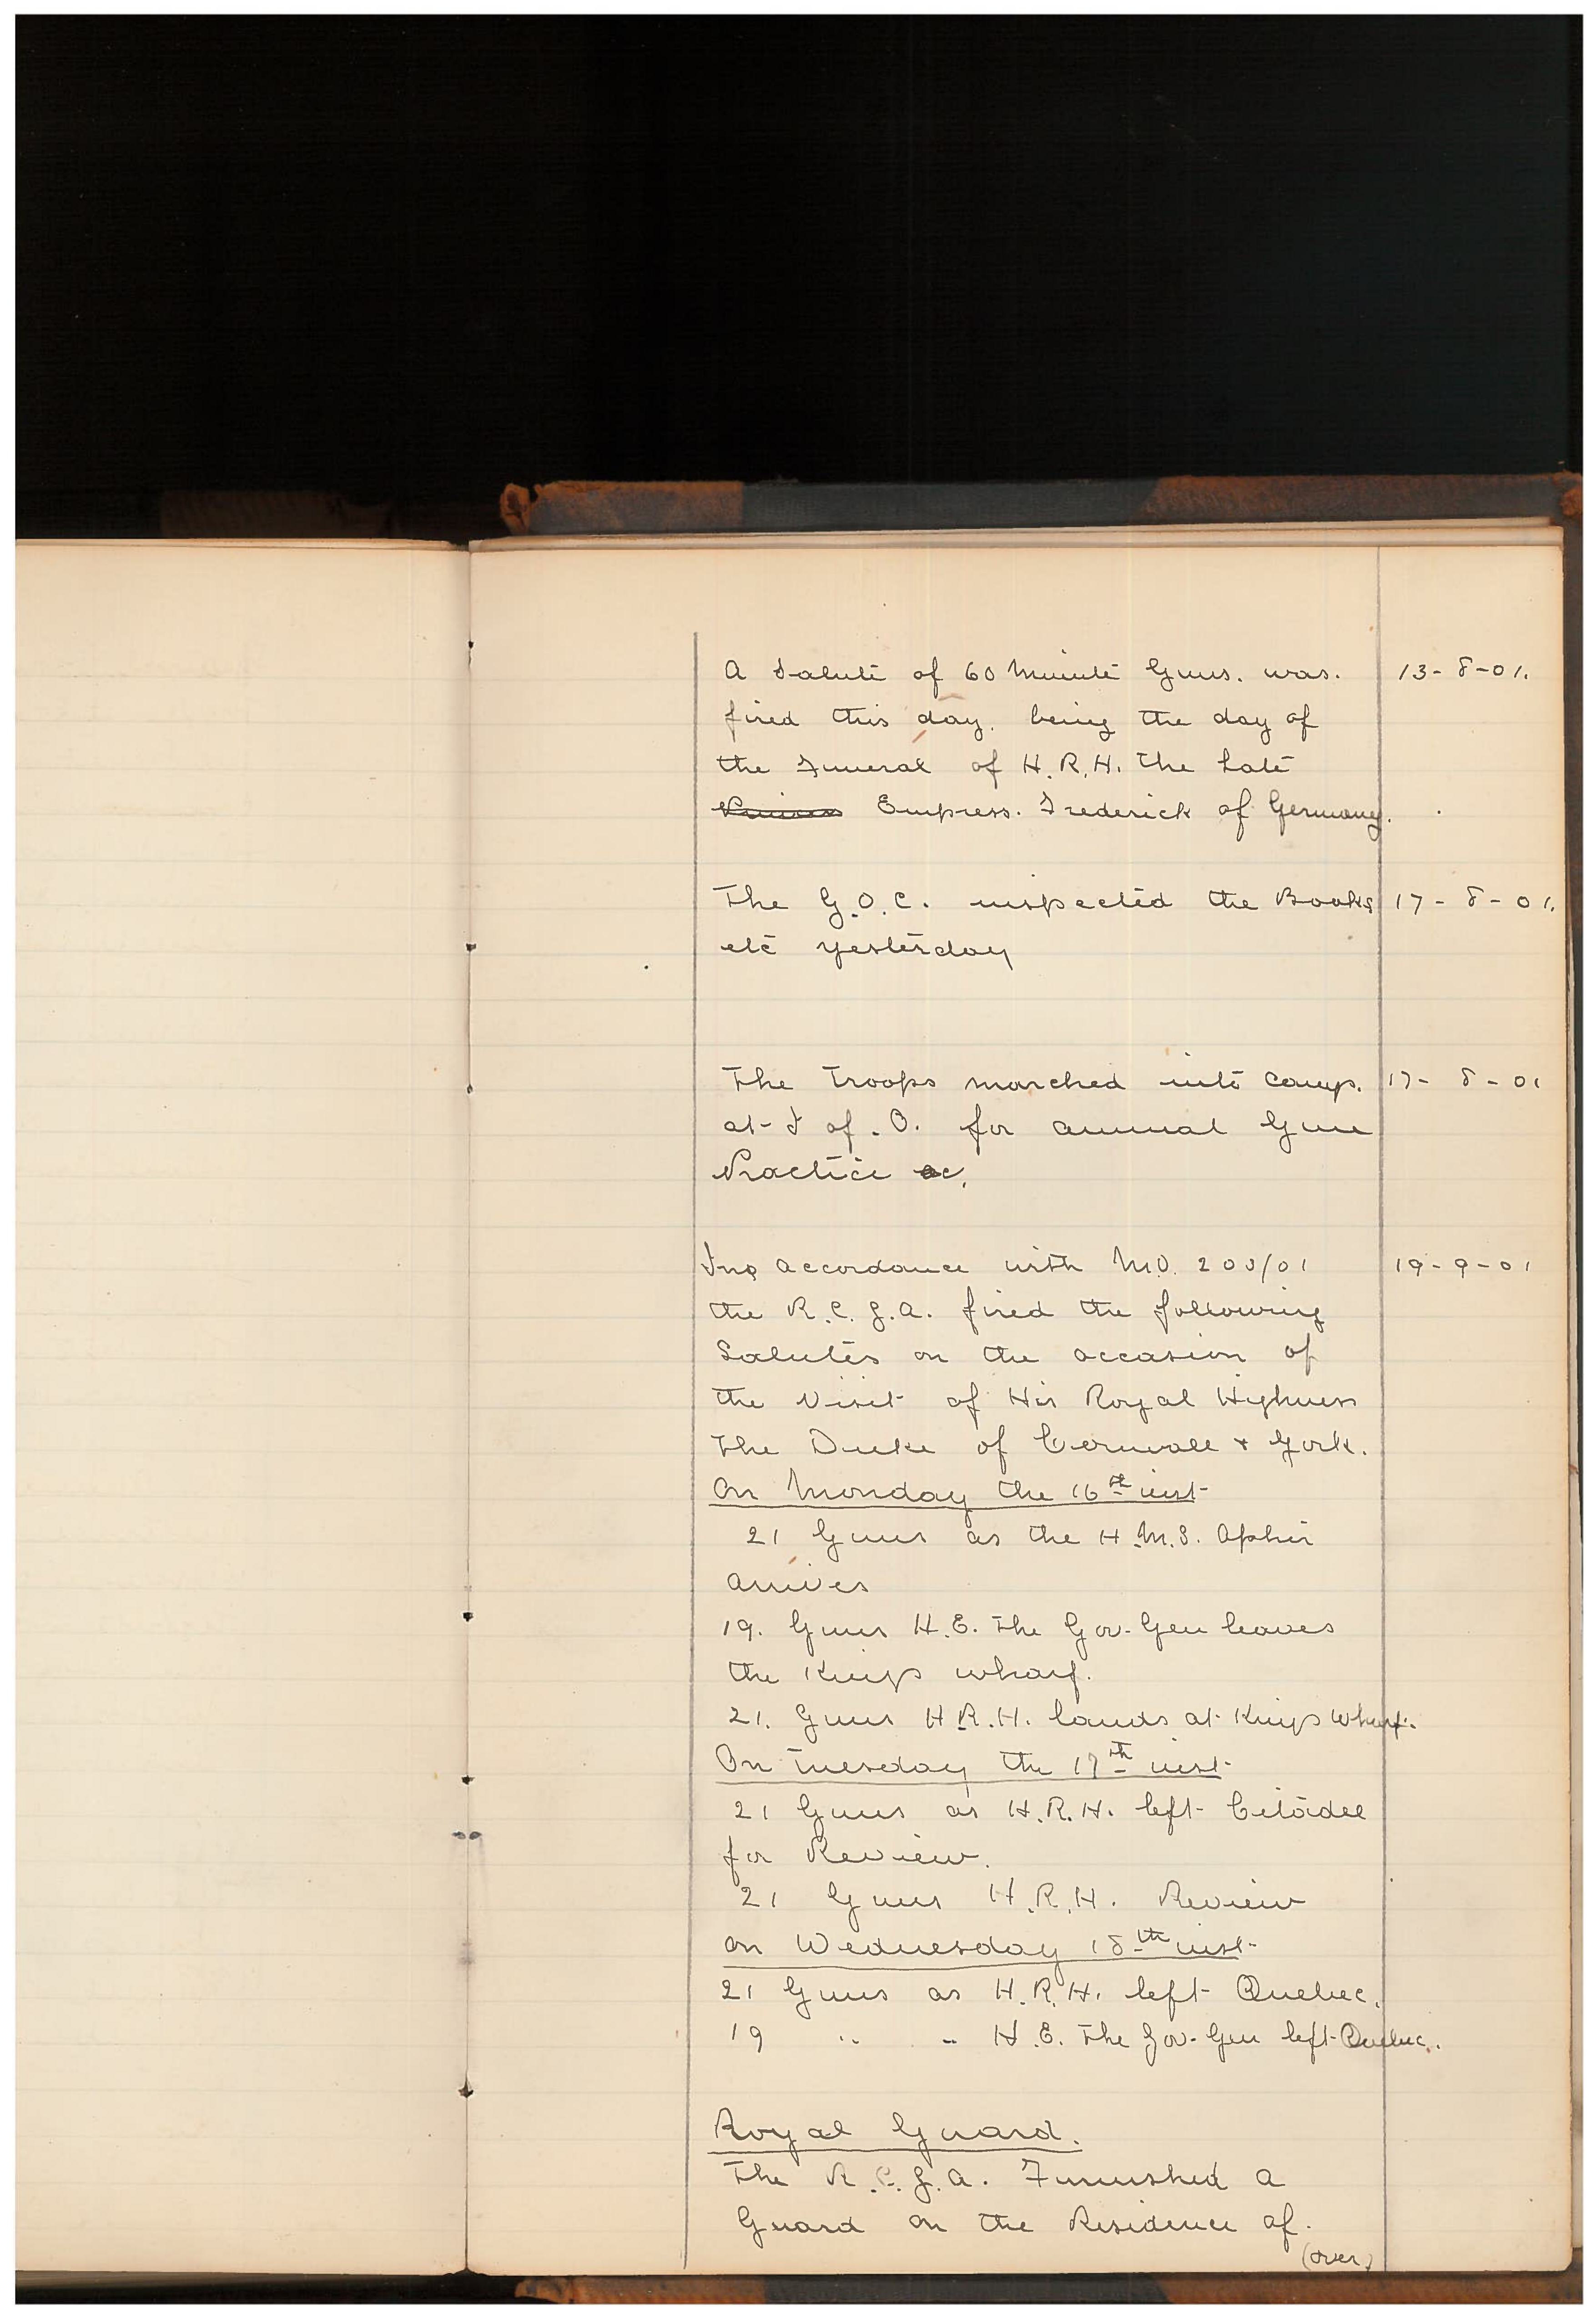 A Salute of 60 Minute Guns. was. 13-8-01.
fired this day. being the day of
the Funeral of H.R.H. The Late
Empress. Frederick of Germany.
The G.O.C. inspected the Books 17-8-01.
etc yesterday
The Troops marched into Camp. 17-8-01
at I of. O. for annual Gun
Practice &c.
In accordance with M.O. 200/01 19-9-01
the R.C.G.A. fired the following
Salutes on the occasion of
the Visit of His Royal Highness
The Duke of Cornwall & York.
On Monday the 16th inst
21 Guns as the H.M.S. Ophir
arrives
19. Guns H.E. The Gov-Gen leaves
the Kings wharf.
21. Guns H.R.H. lands at Kings Wharf.
On Tuesday the 17th inst
21 Guns as H.R.H. left Citadel
for Review.
21 Guns H.R.H. Review
on Wednesday 18th inst
21 Guns as H.R.H. left Quebec.
19 " " H.E. The Gov-Gen left Quebec.
Royal Guard.
The R.C.G.A. Furnished a
Guard on the Residence of.
(over)